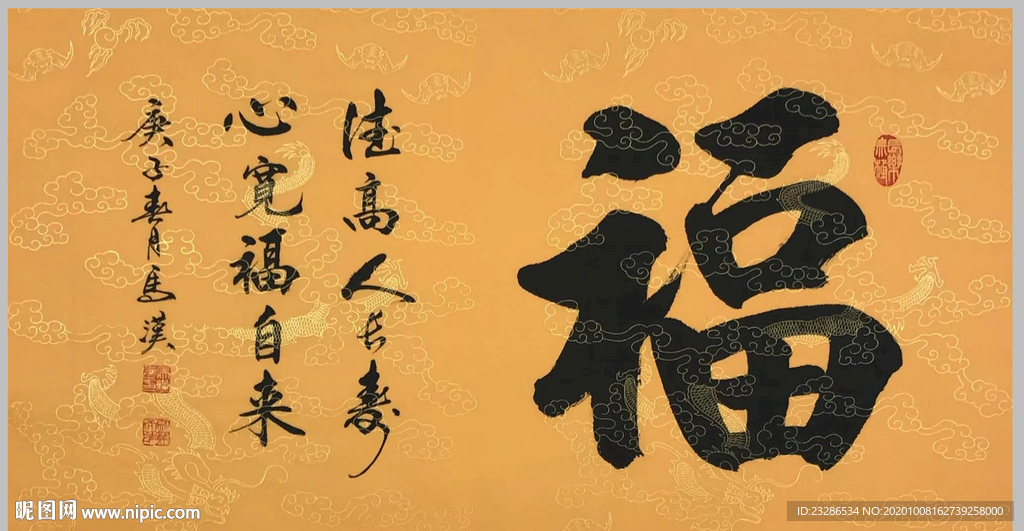 福
德高人长寿
心宽福自来
庚子春月马汉
昵图网 www.nipic.com
ID:23286534 NO:20201008162739258000